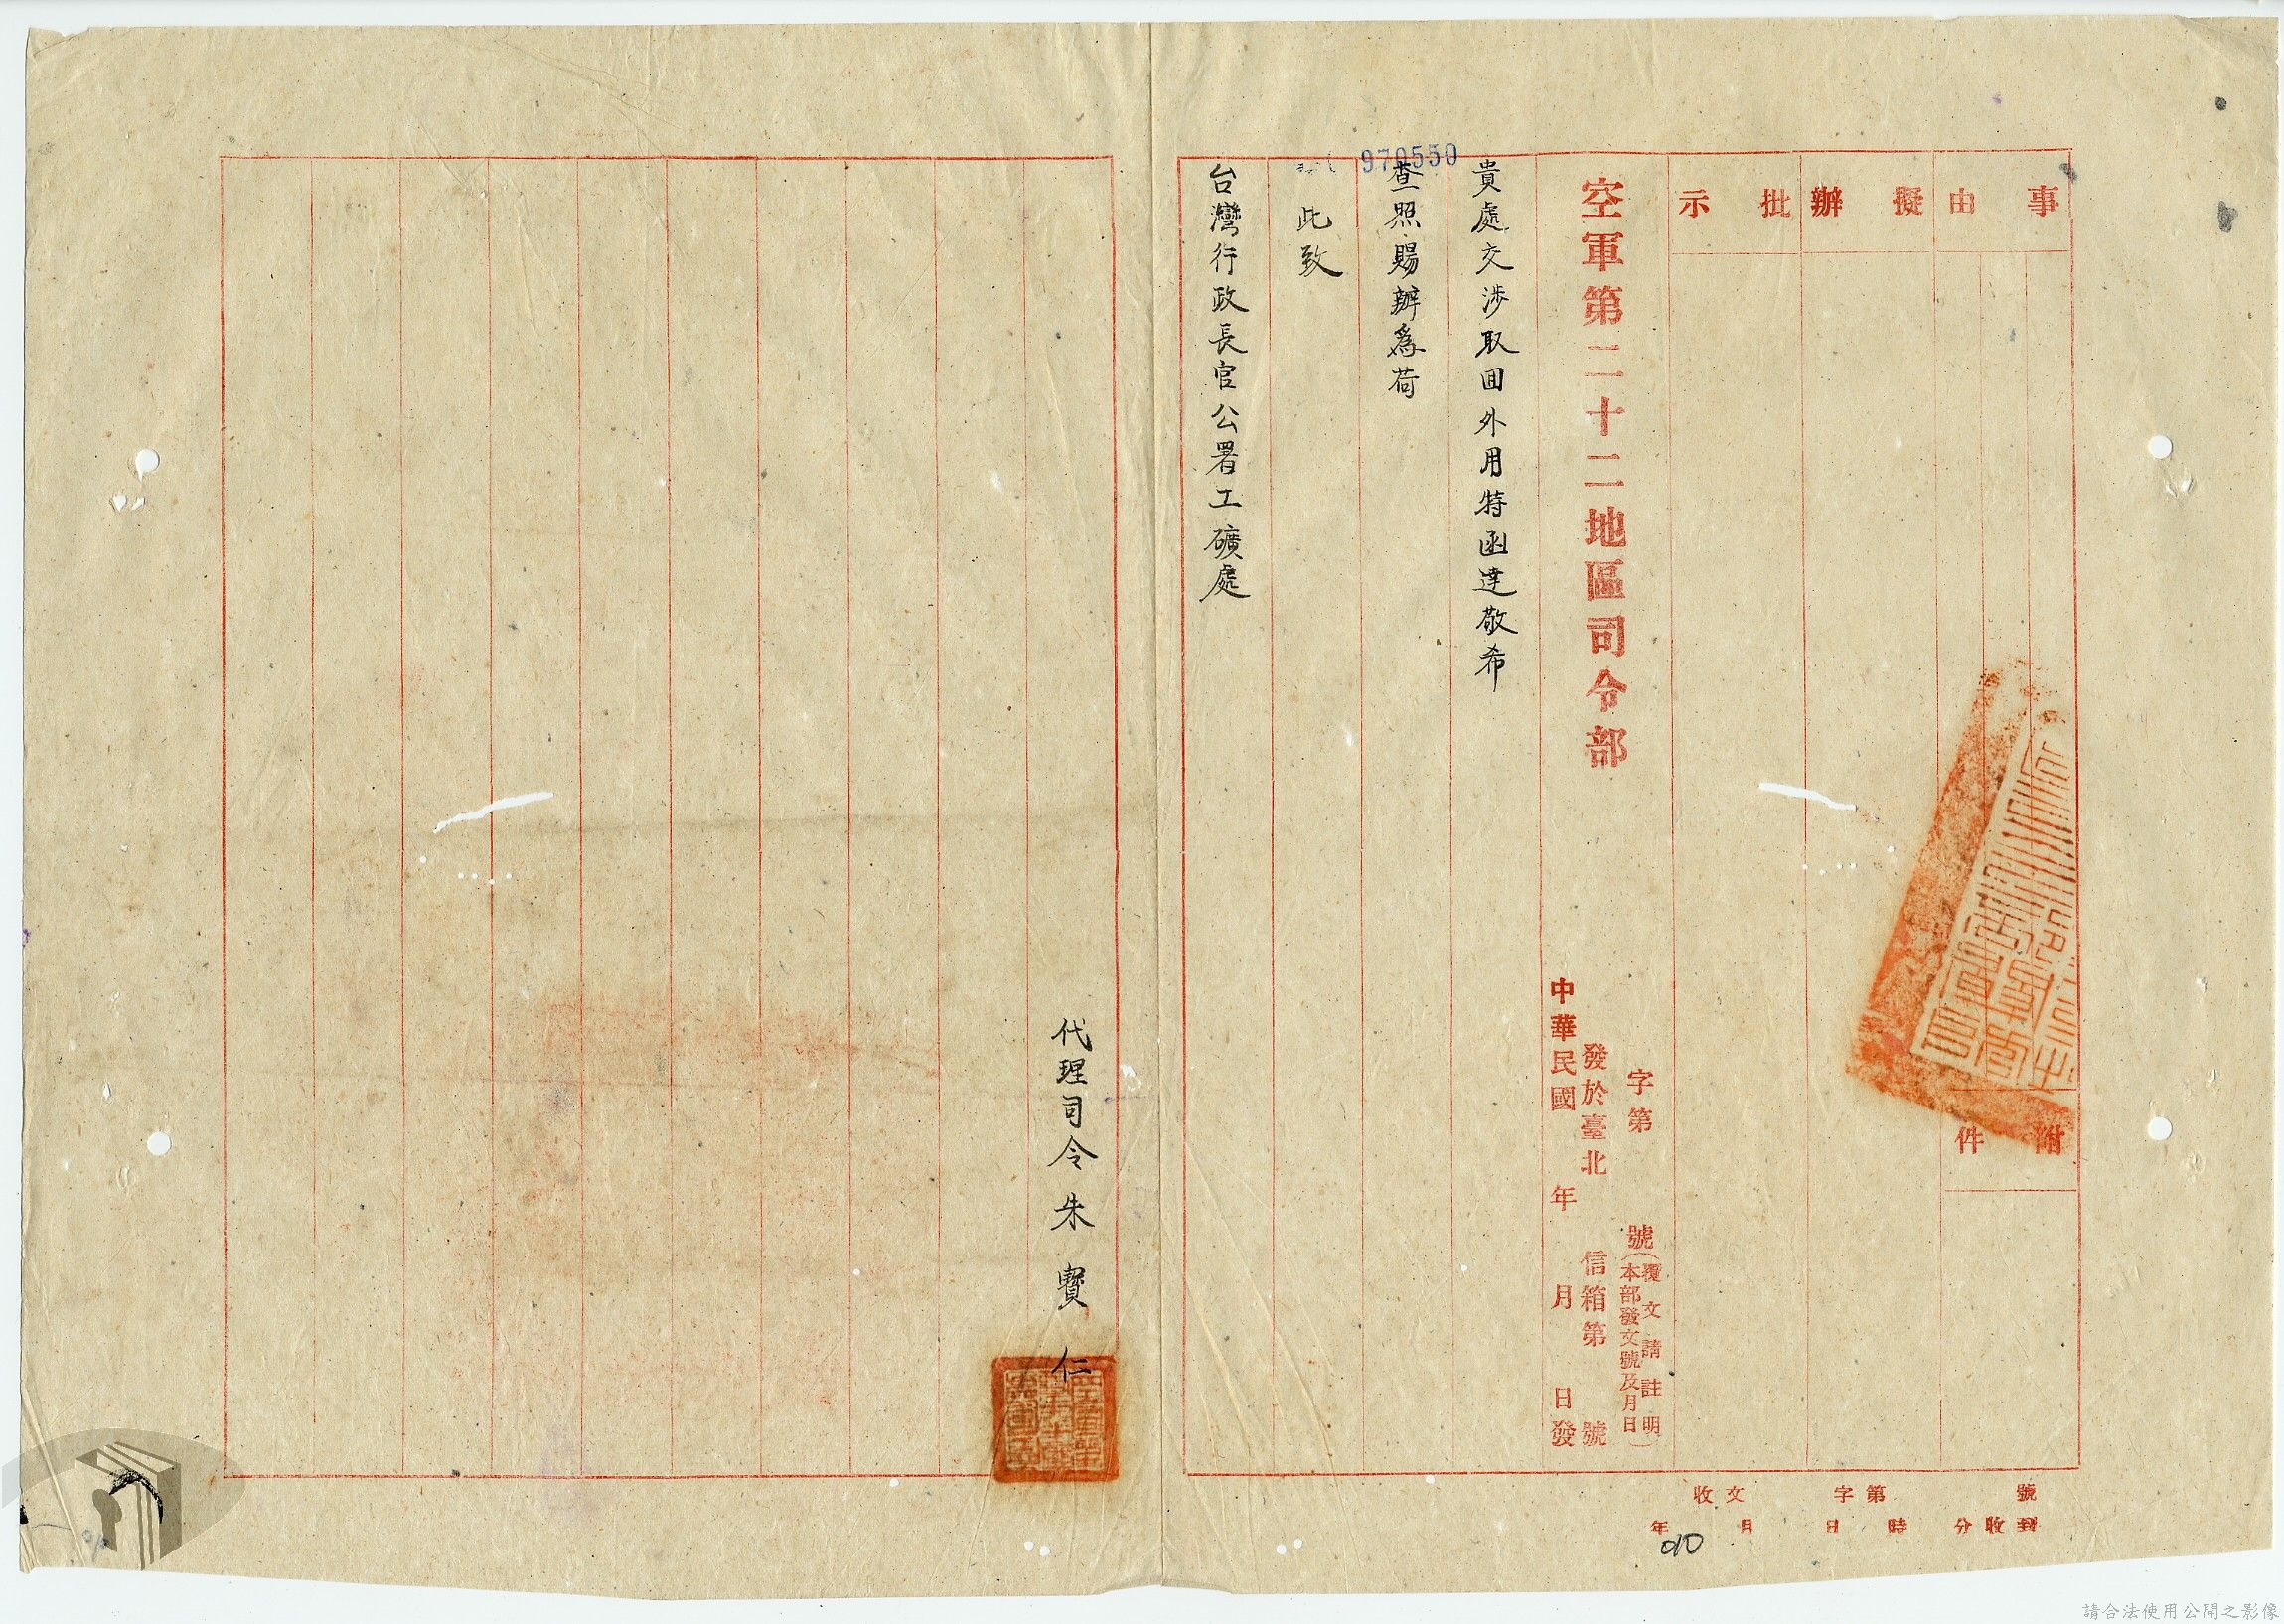 970550
事由
擬辦
批示
附件
空軍第二十二地區司令部
字第 號
(覆文請註明
本部發文號及月日)
發於臺北 信箱第 號
中華民國 年 月 日發
貴處交涉取囬外用特函達敬希
查照賜辦為荷
此致
台灣行政長官公署工礦處
代理司令朱寶仁
收文 字第 號
年 月 日 時 分收到
010
請合法使用公開之影像